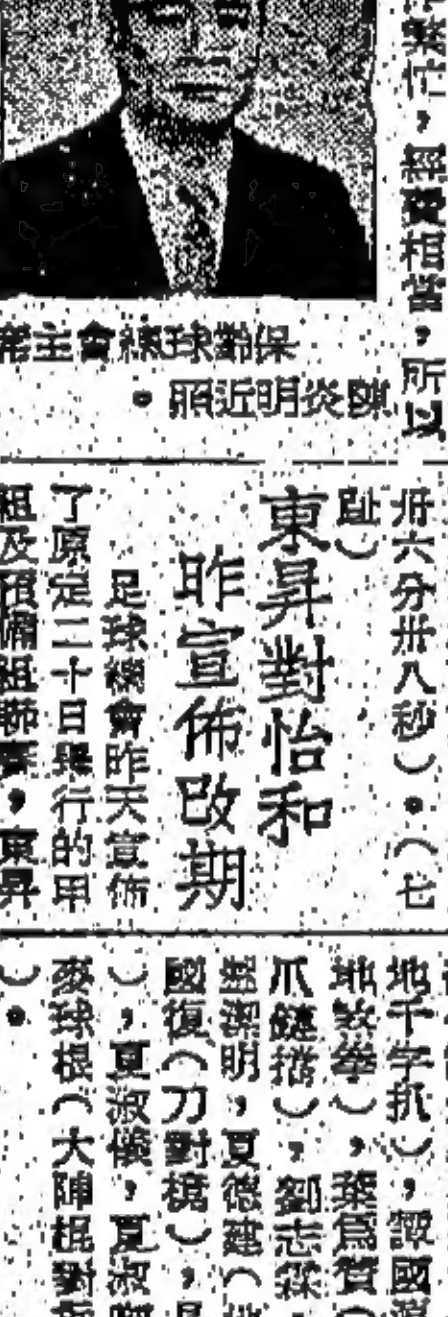 繁忙，經費相當，所以
保齡球總會主席
陳炎明近照。
卅六分卅八秒）。（七
趾）
東昇對怡和
昨宣佈改期
足球總會昨天宣佈
了原定二十日舉行的甲
組及預備組聯賽，東昇
地千字扒），譚國
地 拳），葉爲質（
爪 ），劉志
潔明，夏德建（
國復（刀對 ），
），夏淑 ，夏淑
麥球根（大陣棍對
）。